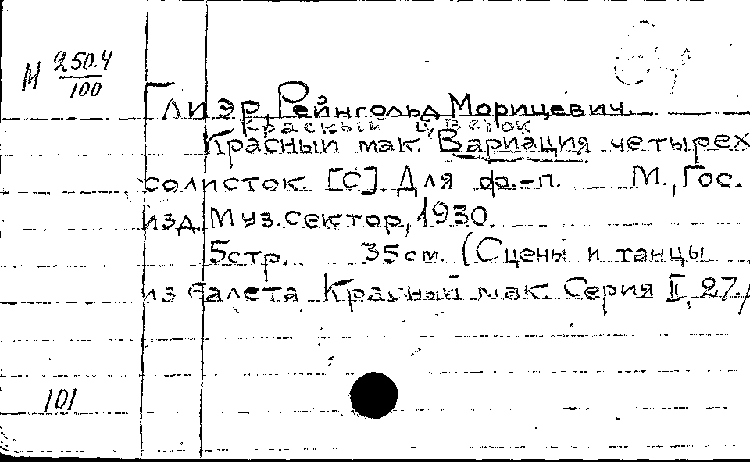 М 250.4
100
Глиэр, Рейнгольд Морицевич.
Красный цветок
Красный мак. Вариация четырех
солисток. [C] Для ф.-п. М., Гос.
изд. Муз. сектор, 1930.
5 стр. 35 см. (Сцены и танцы
из балета Красный мак. Серия II, 27.)
101